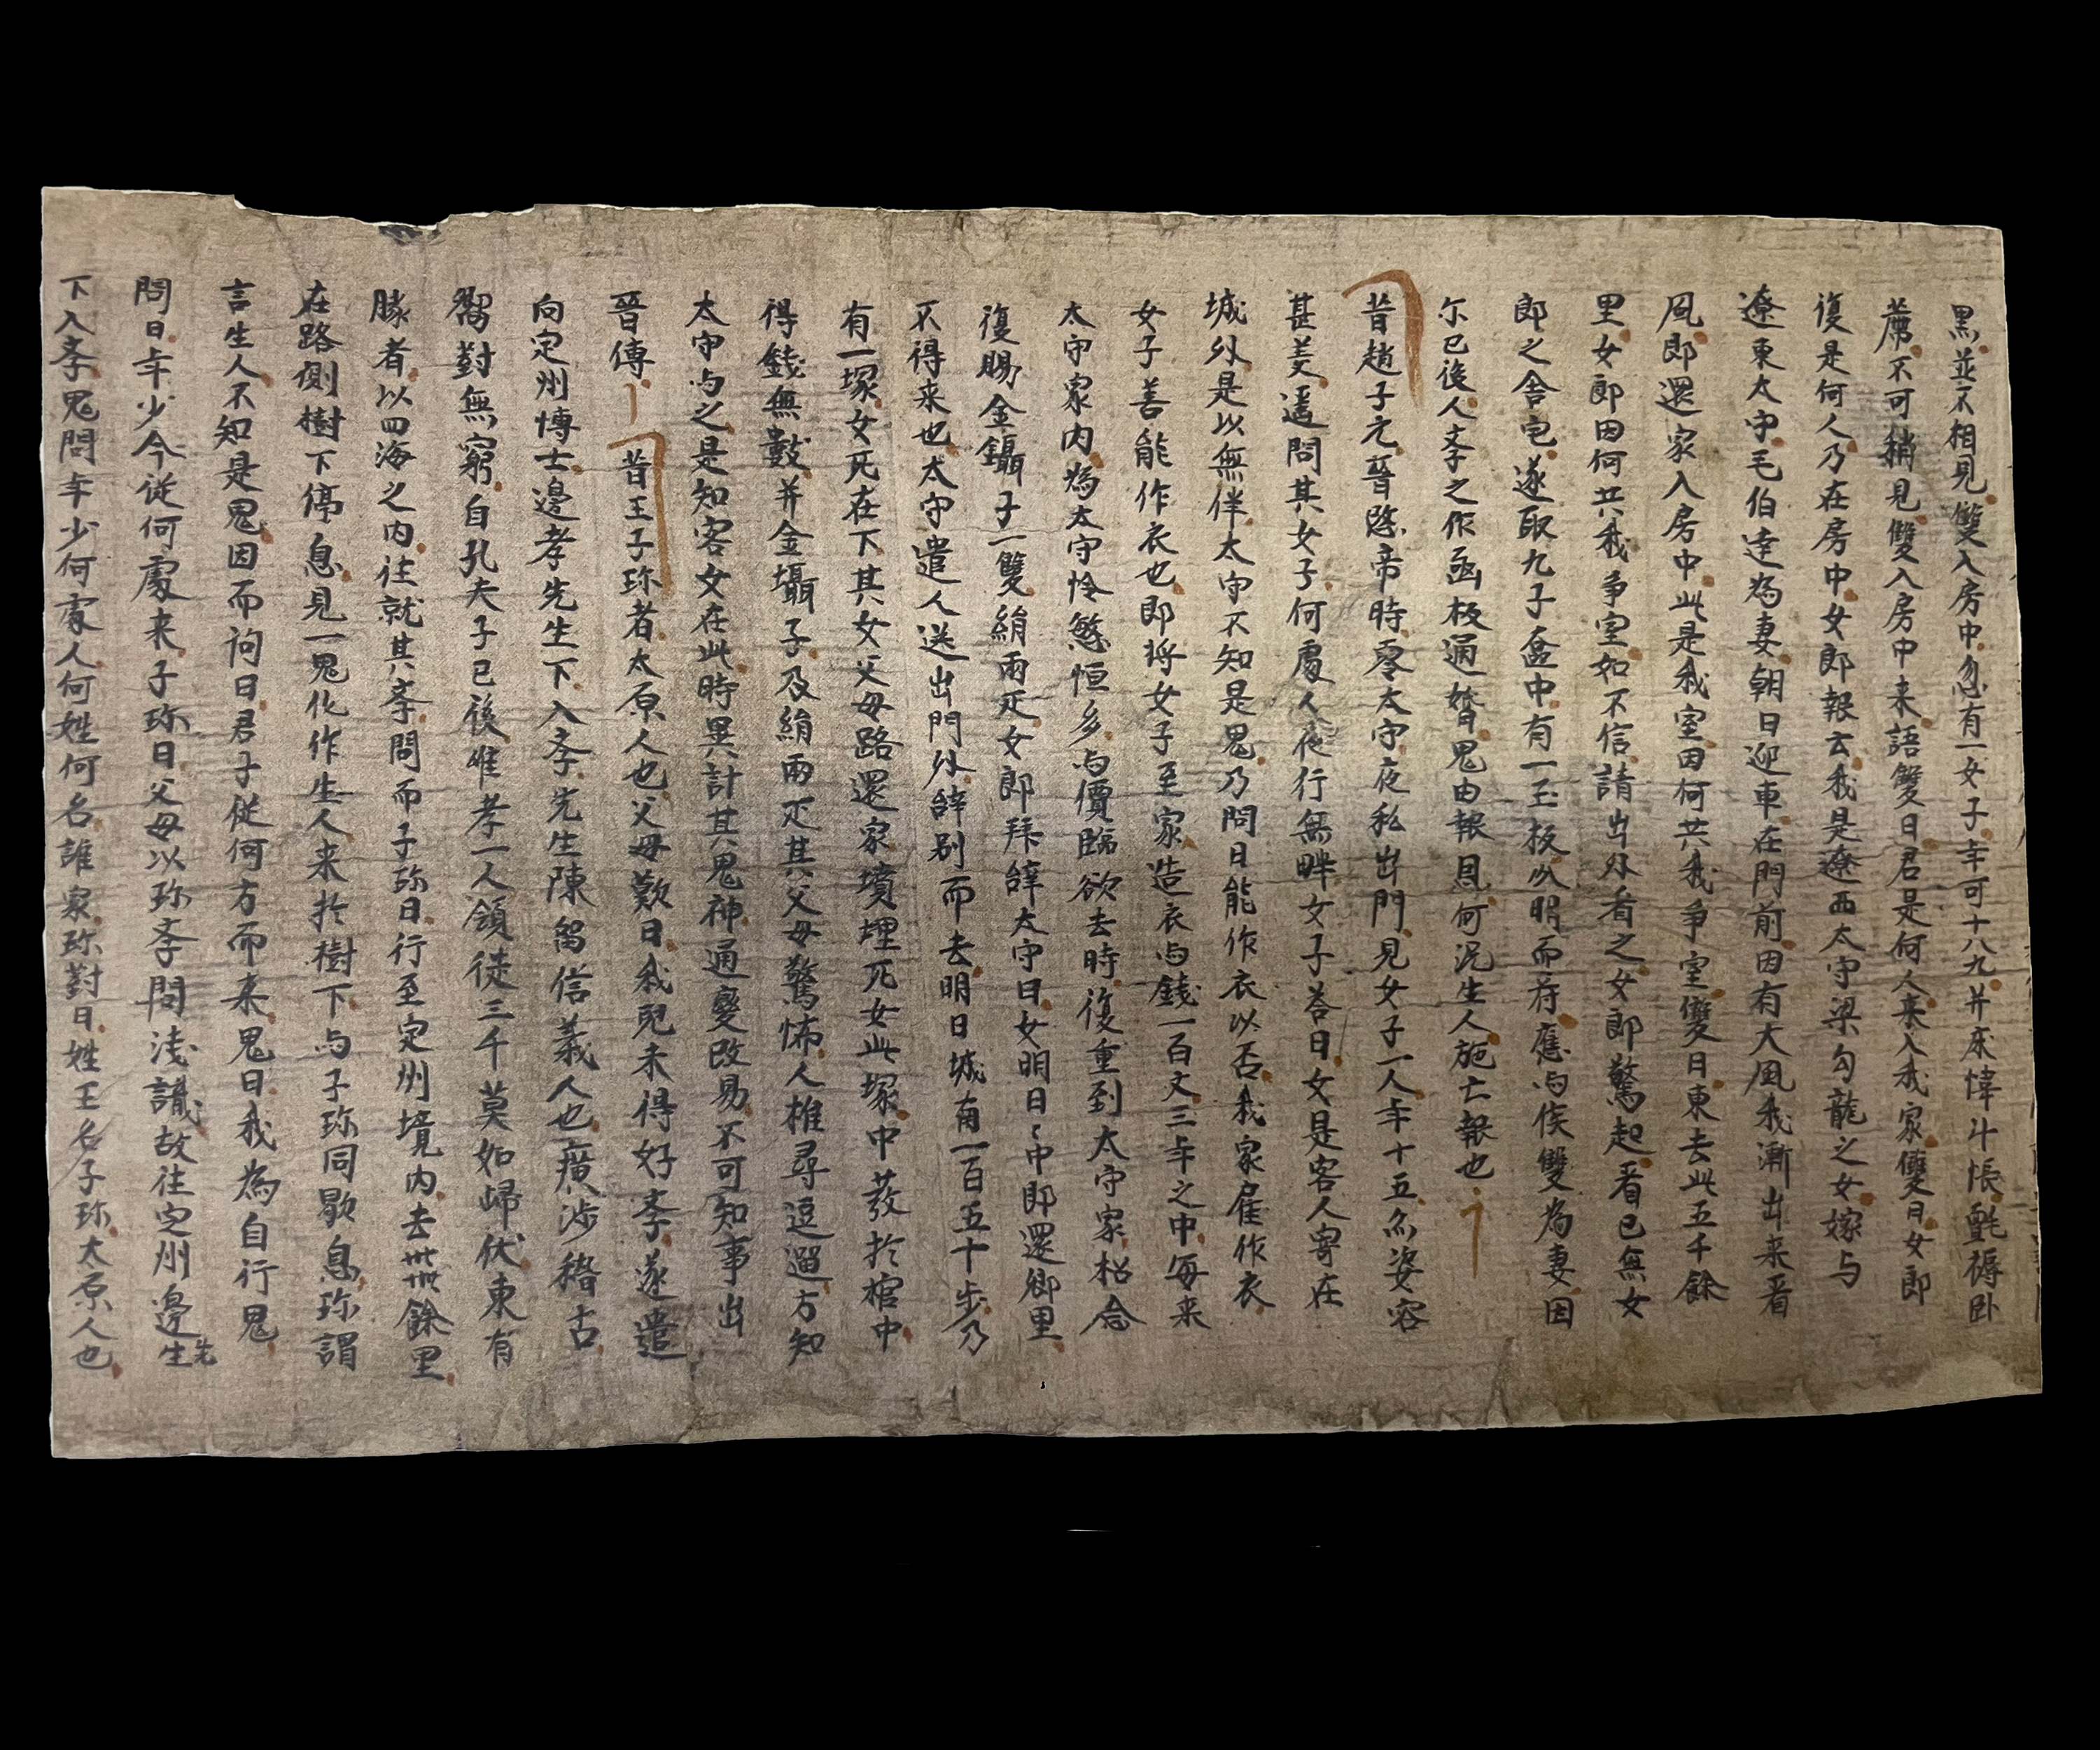 黑並不相見雙入房中忽有一女子年可十八九并床幃斗帳氈褥卧
薦不可稱見雙入房中来語雙曰君是何人来入我家雙曰女郎
復是何人乃在房中女郎報云我是遼西太守梁勾龍之女嫁与
遼東太守毛伯達為妻朝日迎車在門前因有大風我漸出来看
風郎還家入房中此是我室因何共我争室雙曰東去此五千餘
里女郎因何共我争室如不信請出外看之女郎驚起看已無女
郎之舍宅遂取九子奩中有一玉板以明而符應与侯雙為妻因
尔已後人孝之作函板通婚鬼由報恩何況生人施亡報也
昔趙子元晉愍帝時零太守夜私出門見女子一人年十五尔姿容
甚美遥問其女子何處人夜行無畔女子答曰女是客人寄在
城外是以無伴太守不知是鬼乃問曰能作衣以否我家雇作衣
女子善能作衣也即将女子至家造衣与錢一百文三年之中每来
太守家内為太守怜慜恒多与價臨欲去時復重到太守家松合
復賜金鑷子一雙絹兩疋女郎拜辝太守曰女明日〻中即還鄉里
不得来也太守遣人送出門外辝别而去明日城南一百五十步乃
有一塚女死在下其女父母路還家墳埋死女此塚中發於棺中
得錢無數并金鑷子及絹兩疋其父母驚怖人推尋逗遛方知
太守与之是知客女在此時異計其鬼神通變改易不可知事出
晉傳 昔王子珎者太原人也父母歎曰我兒未得好孝遂遣
向定州博士邊孝先生下入孝先生陳留信義人也廣涉稽古
留對無窮自孔夫子已後唯孝一人領徒三千莫如歸伏東有
騰者以四海之内往就其孝問而子珎曰行至定州境内去卅卅餘里
在路側樹下停息見一鬼化作生人来於樹下与子珎同歇息珎謂
言生人不知是鬼因而詢曰君子從何方而来鬼曰我為自行鬼
問曰年少今從何處来子珎曰父母以珎孝問淺識故往定州邊先生
下入孝鬼問年少何處人何姓何名誰家珎對曰姓王名子珎太原人也